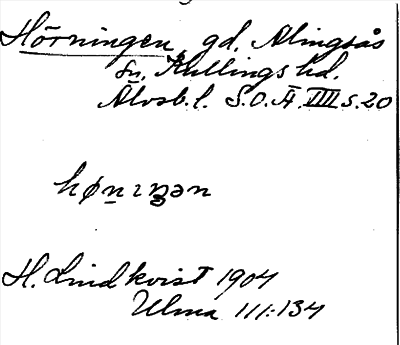 Hörningen, gd. Alingsås
sn, Kullings hd.
Älvsb. l. S.O.Ä. VIII s. 20
hø̱nıŋən
H. Lindkvist 1904
Ulma 111:134